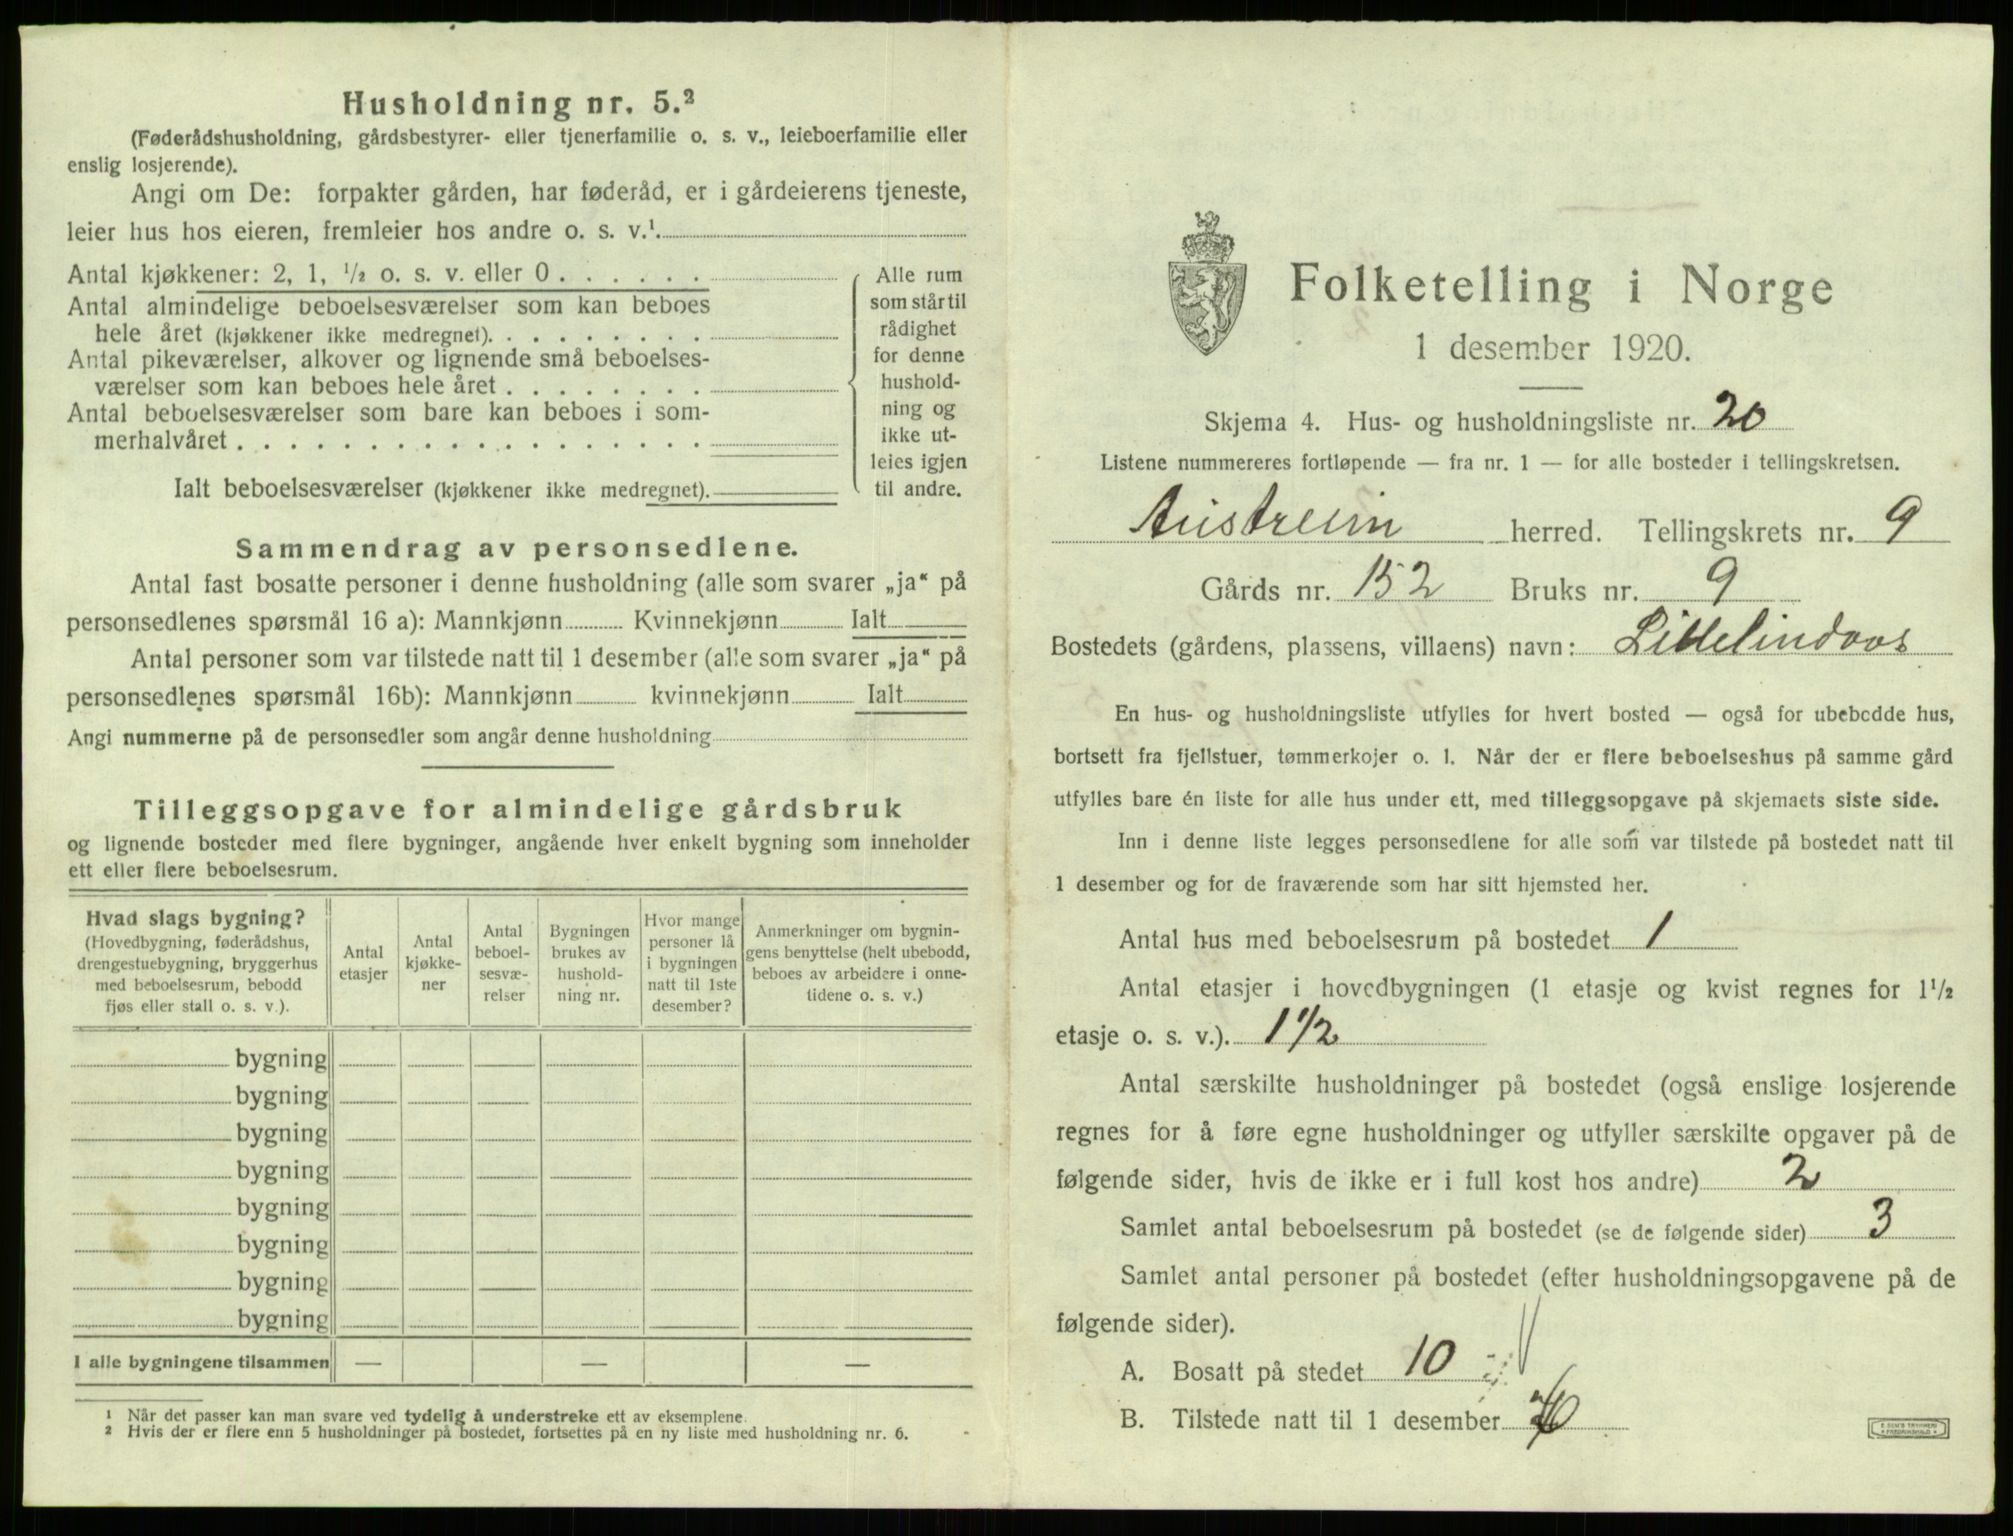 Husholdning nr. 5.²
(Føderådshusholdning, gårdsbestyrer- eller tjenerfamilie o. s. v., leieboerfamilie eller
enslig losjerende).
Angi om De: forpakter gården, har føderåd, er i gårdeierens tjeneste,
leier hus hos eieren, fremleier hos andre o. s. v.¹
Antal kjøkkener: 2, 1, ½ o. s. v. eller 0 . . . . . .
Antal almindelige beboelsesværelser som kan beboes
hele året (kjøkkener ikke medregnet). . . . . . . . .
Antal pikeværelser, alkover og lignende små beboelses-
værelser som kan beboes hele året . . . . . . . .
Antal beboelsesværelser som bare kan beboes i som-
merhalvåret . . . . . . . . . . . . . . . . . .
Ialt beboelsesværelser (kjøkkener ikke medregnet).
Alle rum
som står til
rådighet
for denne
hushold-
ning og
ikke ut-
leies igjen
til andre.
Sammendrag av personsedlene.
Antal fast bosatte personer i denne husholdning (alle som svarer „ja“ på
personsedlenes spørsmål 16 a): Mannkjønn Kvinnekjønn Ialt
Antal personer som var tilstede natt til 1 desember (alle som svarer „ja“ på
personsedlenes spørsmål 16b): Mannkjønn kvinnekjønn Ialt
Angi nummerne på de personsedler som angår denne husholdning
Tilleggsopgave for almindelige gårdsbruk
og lignende bosteder med flere bygninger, angående hver enkelt bygning som inneholder
ett eller flere beboelsesrum.
Hvad slags bygning?
(Hovedbygning, føderådshus,
drengestuebygning, bryggerhus
med beboelsesrum, bebodd
fjøs eller stall o. s. v.).
Antal
etasjer
Antal
kjøkke-
ner
Antal
beboel-
sesvæ-
relser
Bygningen
brukes av
hushold-
ning nr.
Hvor mange
personer lå
i bygningen
natt til 1ste
desember?
Anmerkninger om bygnin-
gens benyttelse (helt ubebodd,
beboes av arbeidere i onne-
tidene o. s. v.)
bygning
bygning
bygning
bygning
bygning
bygning
bygning
bygning
I alle bygningene tilsammen — — —
¹ Når det passer kan man svare ved tydelig å understreke ett av eksemplene.
² Hvis der er flere enn 5 husholdninger på bostedet, fortsettes på en ny liste med husholdning nr. 6.
Folketelling i Norge
1 desember 1920.
Skjema 4. Hus- og husholdningsliste nr. 20
Listene nummereres fortløpende — fra nr. 1 — for alle bosteder i tellingskretsen.
Austreim herred. Tellingskrets nr. 9
Gårds nr. 152 Bruks nr. 9
Bostedets (gårdens, plassens, villaens) navn: Lillelindaas
En hus- og husholdningsliste utfylles for hvert bosted — også for ubebodde hus,
bortsett fra fjellstuer, tømmerkojer o. l. Når der er flere beboelseshus på samme gård
utfylles bare én liste for alle hus under ett, med tilleggsopgave på skjemaets siste side.
Inn i denne liste legges personsedlene for alle som var tilstede på bostedet natt til
1 desember og for de fraværende som har sitt hjemsted her.
Antal hus med beboelsesrum på bostedet 1
Antal etasjer i hovedbygningen (1 etasje og kvist regnes for 1½
etasje o. s. v.). 1 1/2
Antal særskilte husholdninger på bostedet (også enslige losjerende
regnes for å føre egne husholdninger og utfyller særskilte opgaver på de
følgende sider, hvis de ikke er i full kost hos andre) 2
Samlet antal beboelsesrum på bostedet (se de følgende sider) 3
Samlet antal personer på bostedet (efter husholdningsopgavene på de
følgende sider).
A. Bosatt på stedet 10
B. Tilstede natt til 1 desember